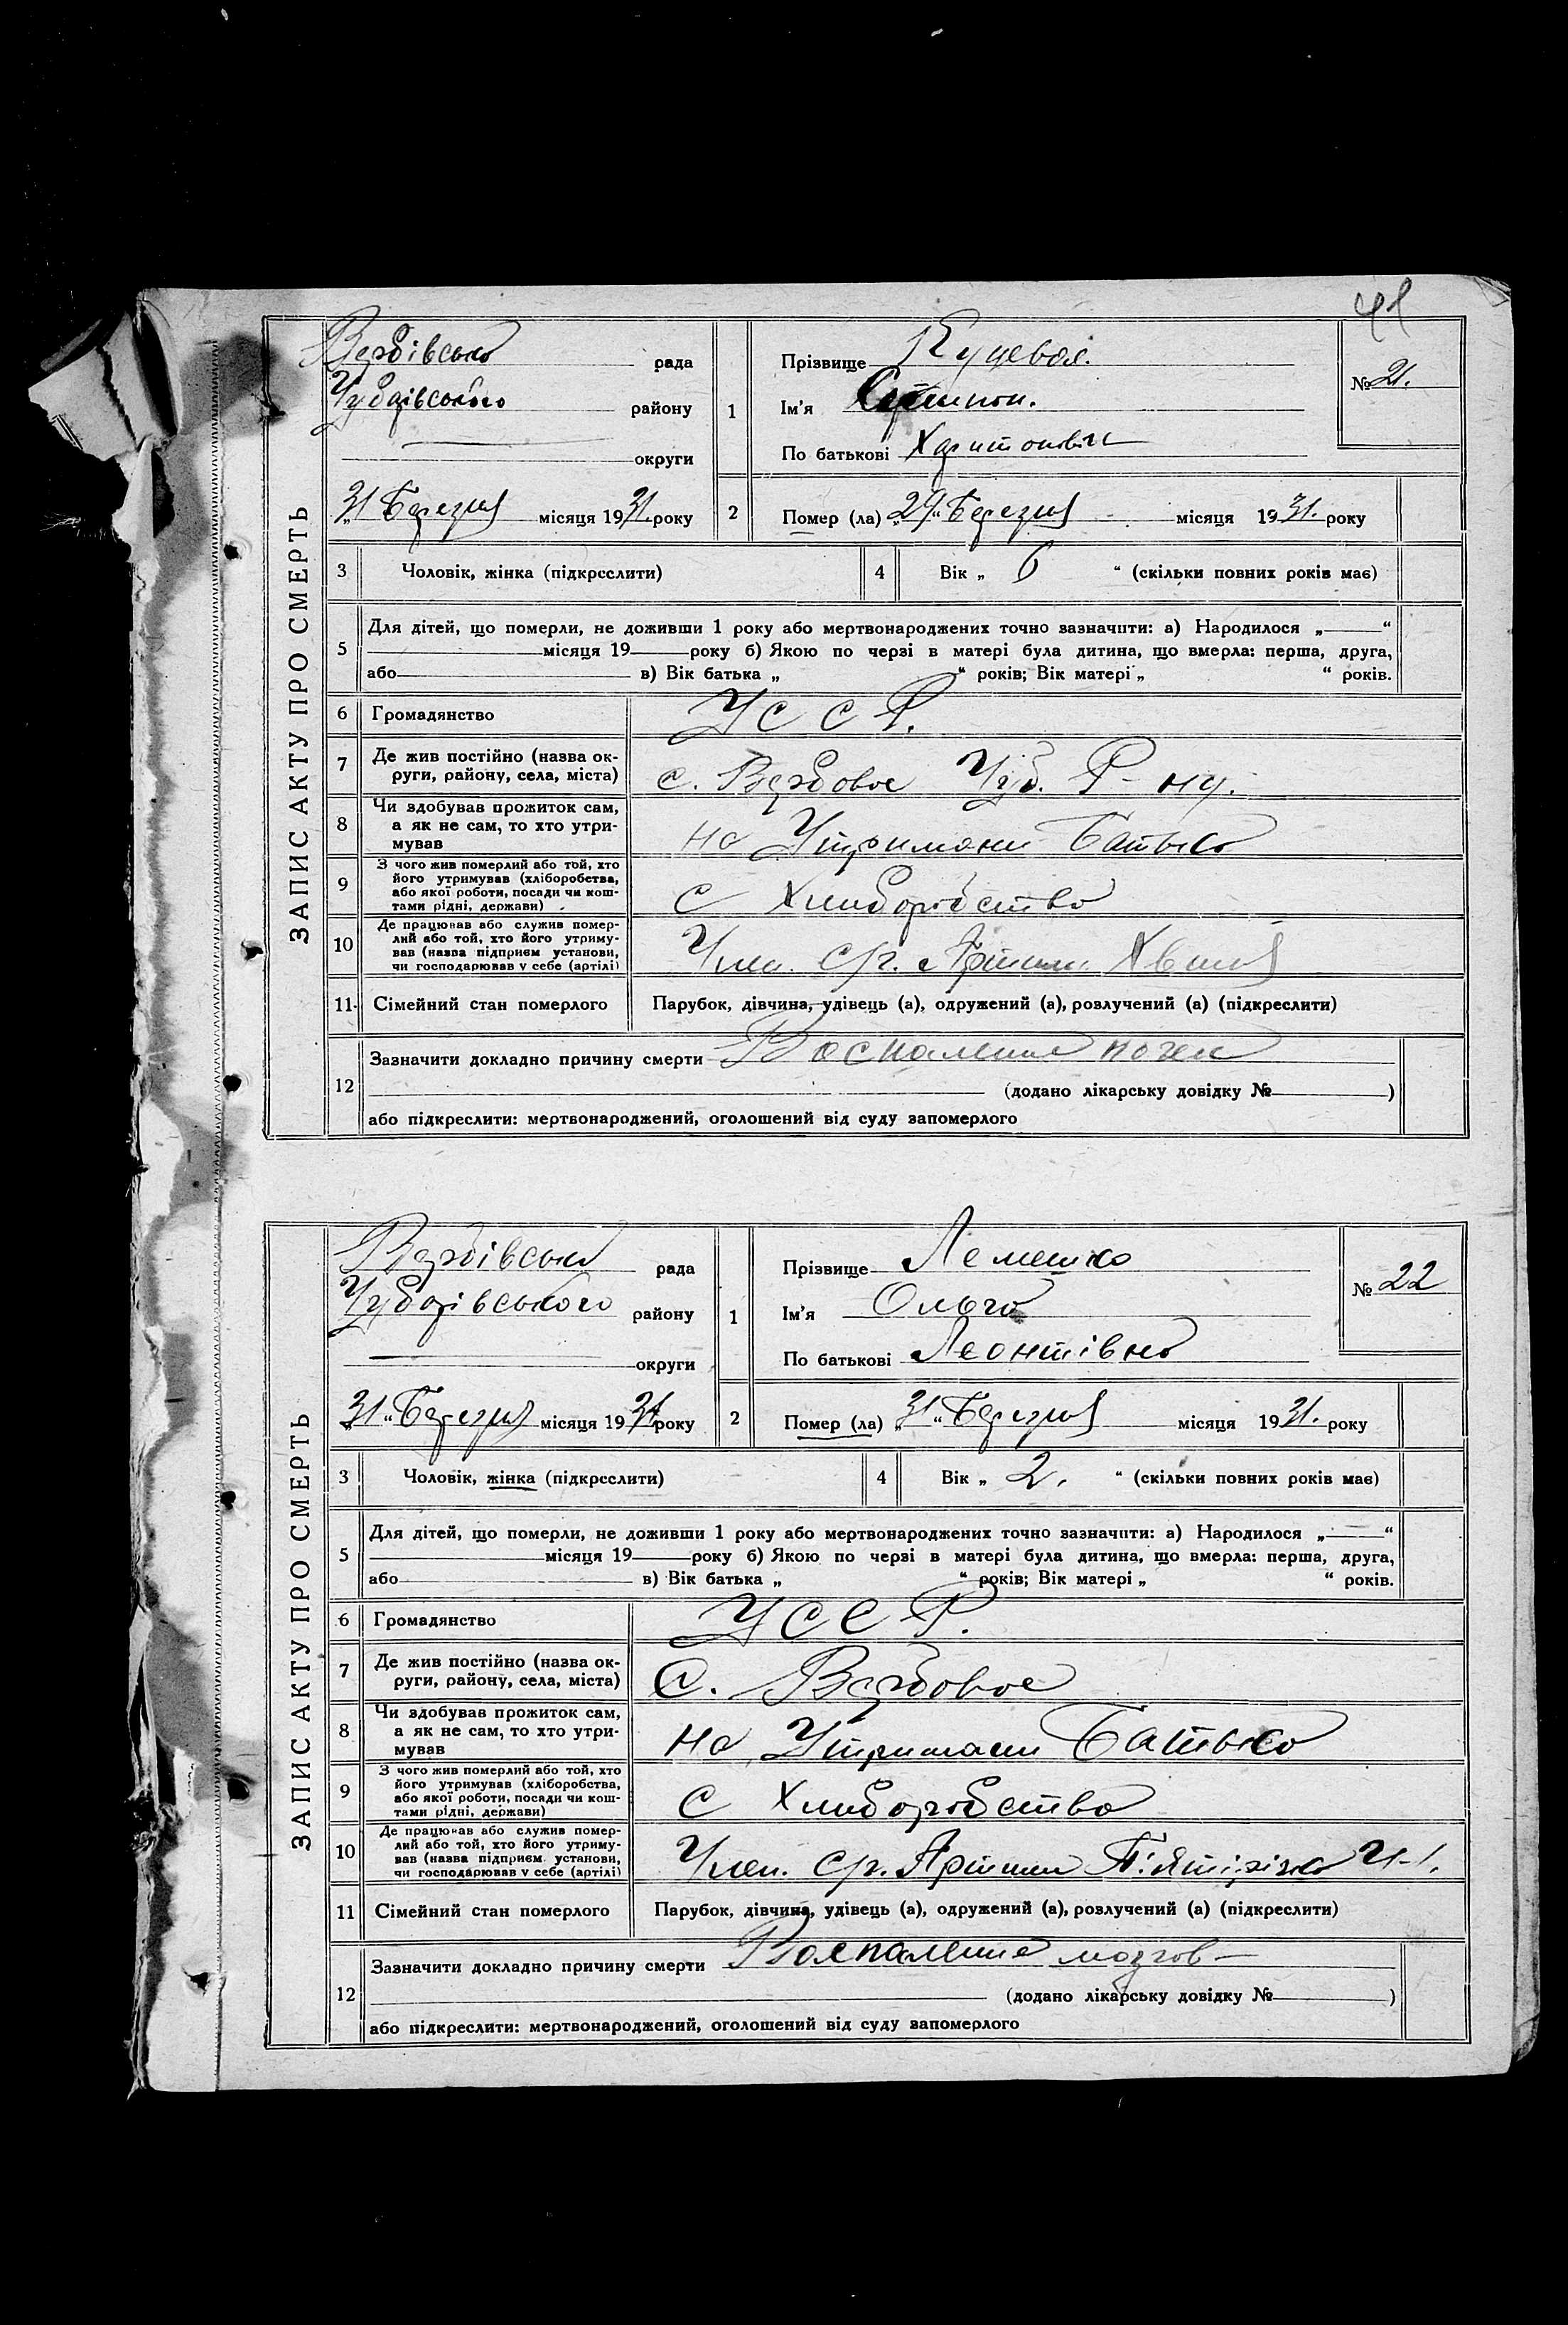 41
ЗАПИС АКТУ ПРО СМЕРТЬ
Вербівська рада
Чубарівського району
округи
„31 Березня місяця 1931. року
1
Прізвище Куцевол.
Ім'я
По батькові Харитонович
№ 21.
2
Помер (ла) „29“ Березня місяця 1931. року
3 Чоловік, жінка (підкреслити)
4 Вік „ 6 “ (скільки повних років має)
5 Для дітей, що померли, не доживши 1 року або мертвонароджених точно зазначити: а) Народилося „ “
місяця 19 року б) Якою по черзі в матері була дитина, що вмерла: перша, друга,
або в) Вік батька „ “ років; Вік матері „ “ років.
6 Громадянство УССР.
7 Де жив постійно (назва ок-
руги, району, села, міста) с. Вербовое Чуб. Р-ну.
8 Чи здобував прожиток сам,
а як не сам, то хто утри-
мував на Утримани Батька
9 З чого жив померлий або той, хто
його утримував (хліборобства,
або якої роботи, посади чи кош-
тами рідні, держави) С Хлиборобства
10 Де працював або служив помер-
лий або той, хто його утриму-
вав (назва підприєм. установи,
чи господарював у себе (артілі) Член. С/г. Артили Хвиля
11 Сімейний стан померлого Парубок, дівчина, удівець (а), одружений (а), розлучений (а) (підкреслити)
12 Зазначити докладно причину смерти Воспаление почек
(додано лікарську довідку № )
або підкреслити: мертвонароджений, оголошений від суду запомерлого
ЗАПИС АКТУ ПРО СМЕРТЬ
Вербівська рада
Чубарівського району
округи
„31“ Березня місяця 1931 року
1
Прізвище Лемешко
Ім'я Ольга
По батькові Леонтівна
№ 22
2
Помер (ла) „31“ Березня місяця 1931. року
3 Чоловік, жінка (підкреслити)
4 Вік „ 2. “ (скільки повних років має)
5 Для дітей, що померли, не доживши 1 року або мертвонароджених точно зазначити: а) Народилося „ “
місяця 19 року б) Якою по черзі в матері була дитина, що вмерла: перша, друга,
або в) Вік батька „ “ років; Вік матері „ “ років.
6 Громадянство УССР.
7 Де жив постійно (назва ок-
руги, району, села, міста) С. Вербовое
8 Чи здобував прожиток сам,
а як не сам, то хто утри-
мував на Утримани Батька
9 З чого жив померлий або той, хто
його утримував (хліборобства,
або якої роботи, посади чи кош-
тами рідні, держави) С Хлиборобства
10 Де працював або служив помер-
лий або той, хто його утриму-
вав (назва підприєм. установи,
чи господарював у себе (артілі) Член. С/г. Артили
11 Сімейний стан померлого Парубок, дівчина, удівець (а), одружений (а), розлучений (а) (підкреслити)
12 Зазначити докладно причину смерти Воспаление мозгов
(додано лікарську довідку № )
або підкреслити: мертвонароджений, оголошений від суду запомерлого